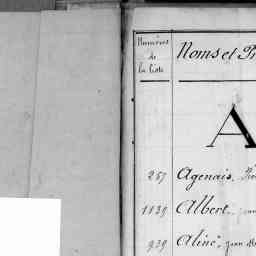 Numéros
de
la liste
Noms et
A
257 Agenais,
1139 Albert,
939 Aliné, Jean